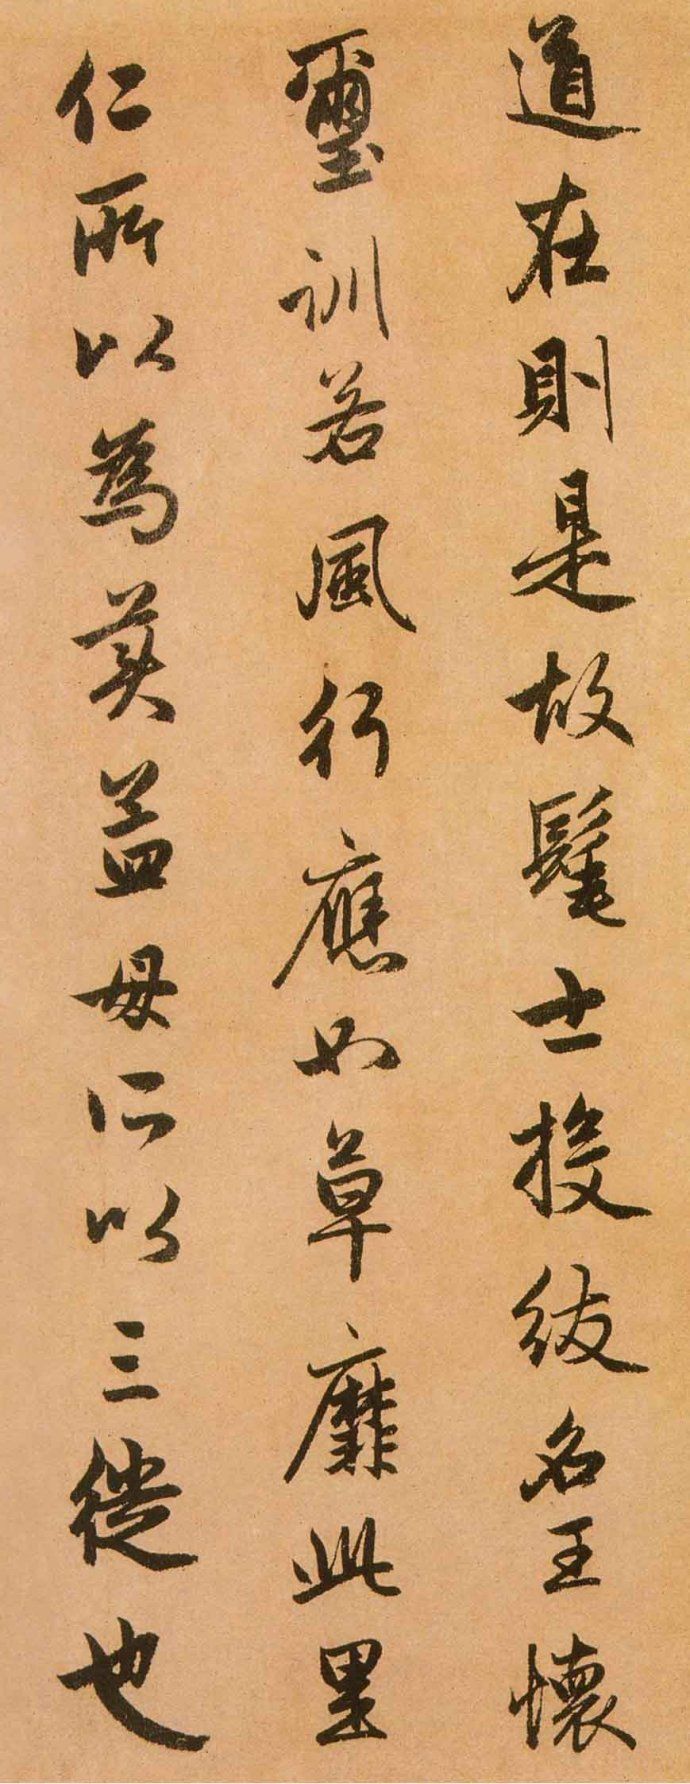 道在則是故髦士投紱名王懷
璽訓若風行應如草靡此里
仁所以為美孟母所以三徙也